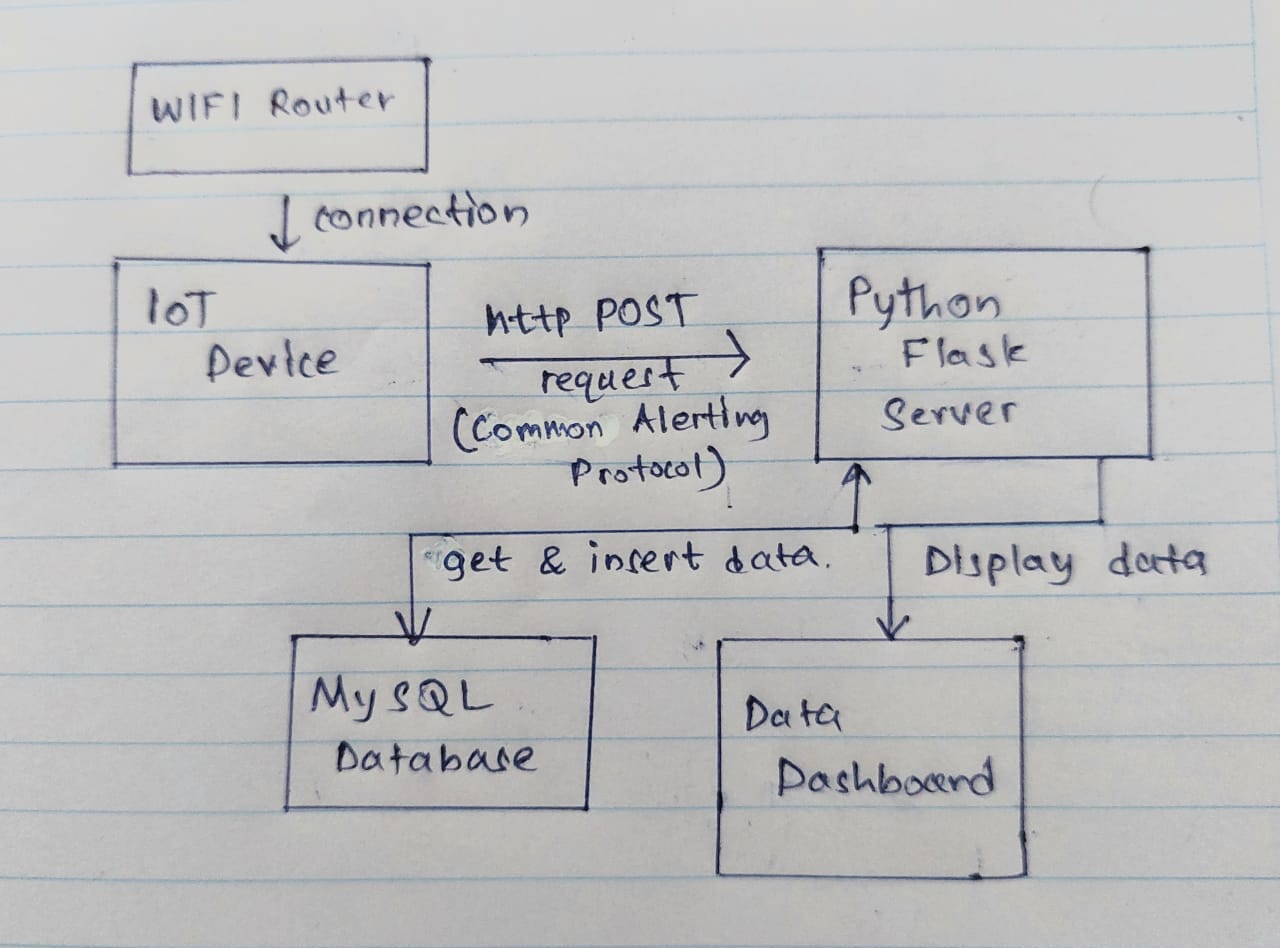 WIFI Router
connection
IoT
Device
http POST
request
(Common Alerting
Protocol)
Python
Flask
Server
get & insert data.
Display data
MySQL
Database
Data
Dashboard